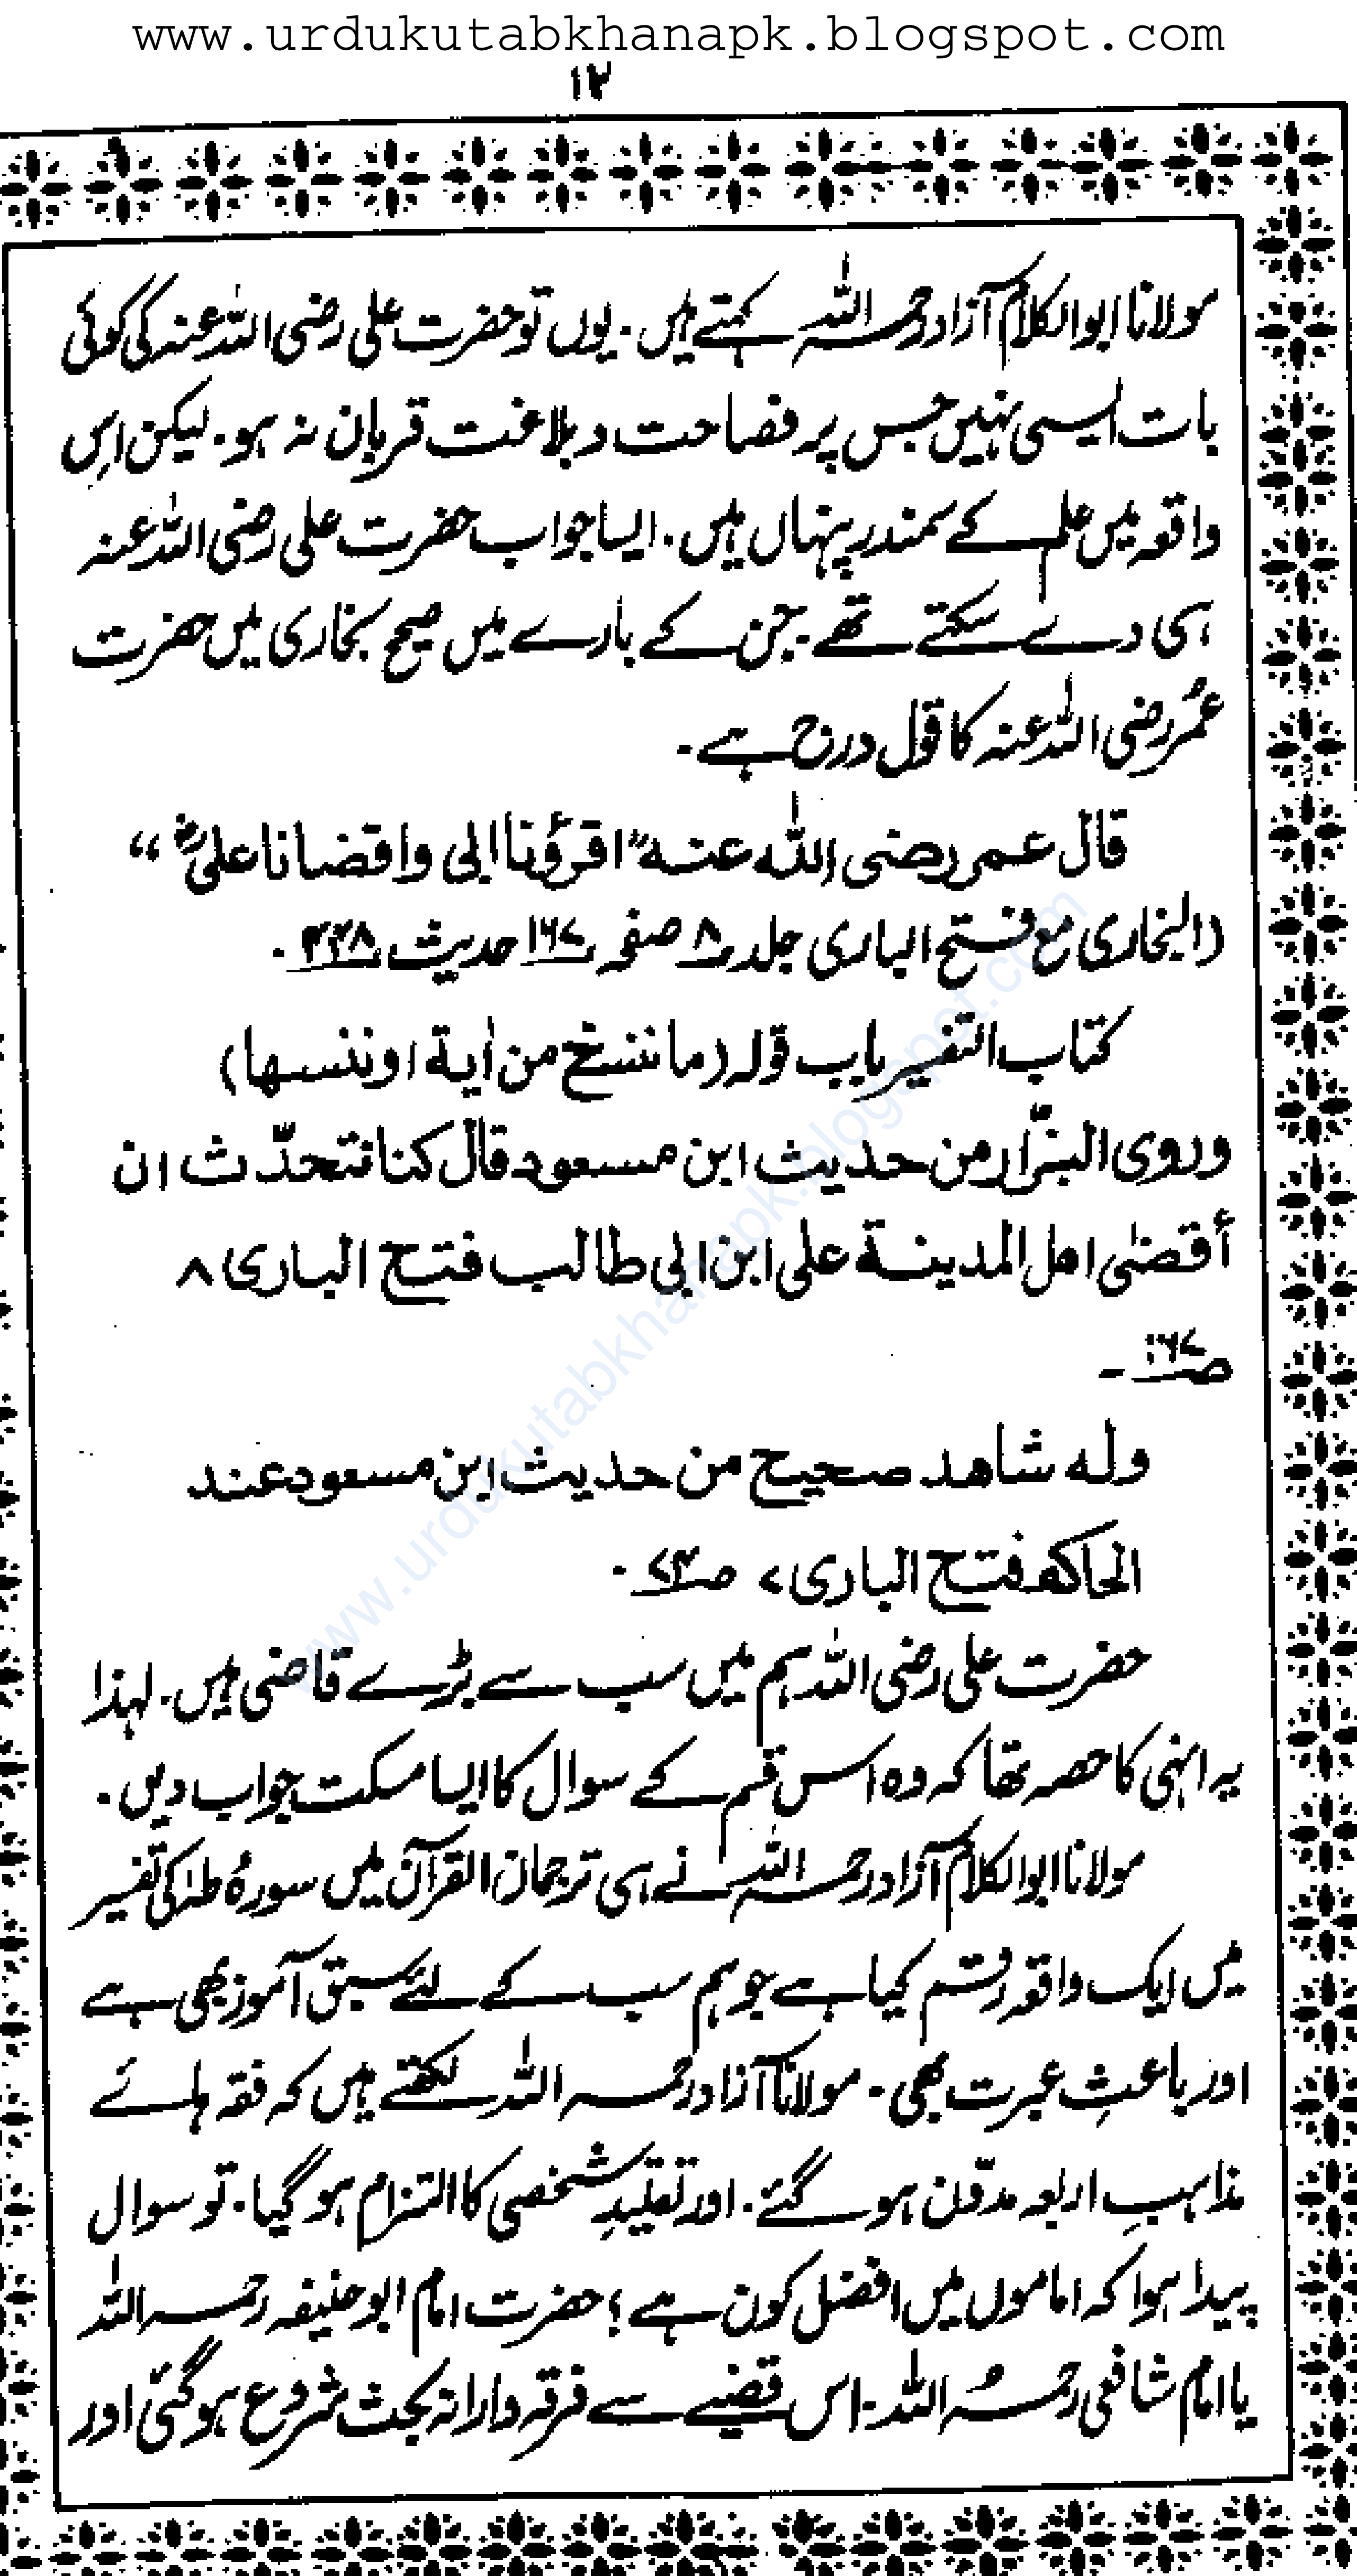 www.urdukutabkhanapk.blogspot.com
۱۲
مولانا ابوالکلام آزاد رحمہ اللہ کہتے ہیں۔ یوں تو حضرت علی رضی اللہ عنہ کی کوئی
بات ایسی نہیں جس پر فصاحت و بلاغت قربان نہ ہو۔ لیکن اِس
واقعہ میں علم کے سمندر پنہاں ہیں۔ ایسا جواب حضرت علی رضی اللہ عنہ
ہی دے سکتے تھے۔ جن کے بارے میں صحیح بخاری میں حضرت
عمُر رضی اللہ عنہ کا قول درج ہے۔
قال عمر رضی اللہ عنہ "اقرؤنا ابی واقضانا علیؓ"
(البخاری مع فتح الباری جلد ۸ صفحہ ۱۶۷ حدیث ۴۴۸۔
کتاب التفسیر باب قولہ (ما ننسخ من اٰیة اوننسہا)
وروی البزّار من حدیث ابن مسعود قال کنا نتحدّث ان
أقضیٰ اہل المدینة علی ابن ابی طالب فتح الباری ۸
صـ ۱۶۷ ۔
ولہ شاھد صحیح من حدیث ابن مسعود عند
الحاکم فتح الباری ۷ صـ ۷۴ ۔
حضرت علی رضی اللہ ہم میں سب سے بڑے قاضی ہیں۔ لہذا
یہ انہی کا حصہ تھا کہ وہ اس قسم کے سوال کا ایسا مسکت جواب دیں۔
مولانا ابوالکلام آزاد رحمہ اللہ نے ہی ترجمان القرآن میں سورۂ طہٰ کی تفسیر
میں ایک واقعہ رقم کیا ہے جو ہم سب کے لئے سبق آموز بھی ہے
اور باعثِ عبرت بھی۔ مولانا آزاد رحمہ اللہ لکھتے ہیں کہ فقہ ہائے
مذاہبِ اربعہ مدوّن ہو گئے۔ اور تقلیدِ شخصی کا التزام ہو گیا۔ تو سوال
پیدا ہوا کہ اماموں میں افضل کون ہے؟ حضرت امام ابو حنیفہ رحمہ اللہ
یا امام شافعی رحمہُ اللہ۔ اس قضیے سے فرقہ دارانہ بحث شروع ہو گئی اور
www.urdukutabkhanapk.blogspot.com